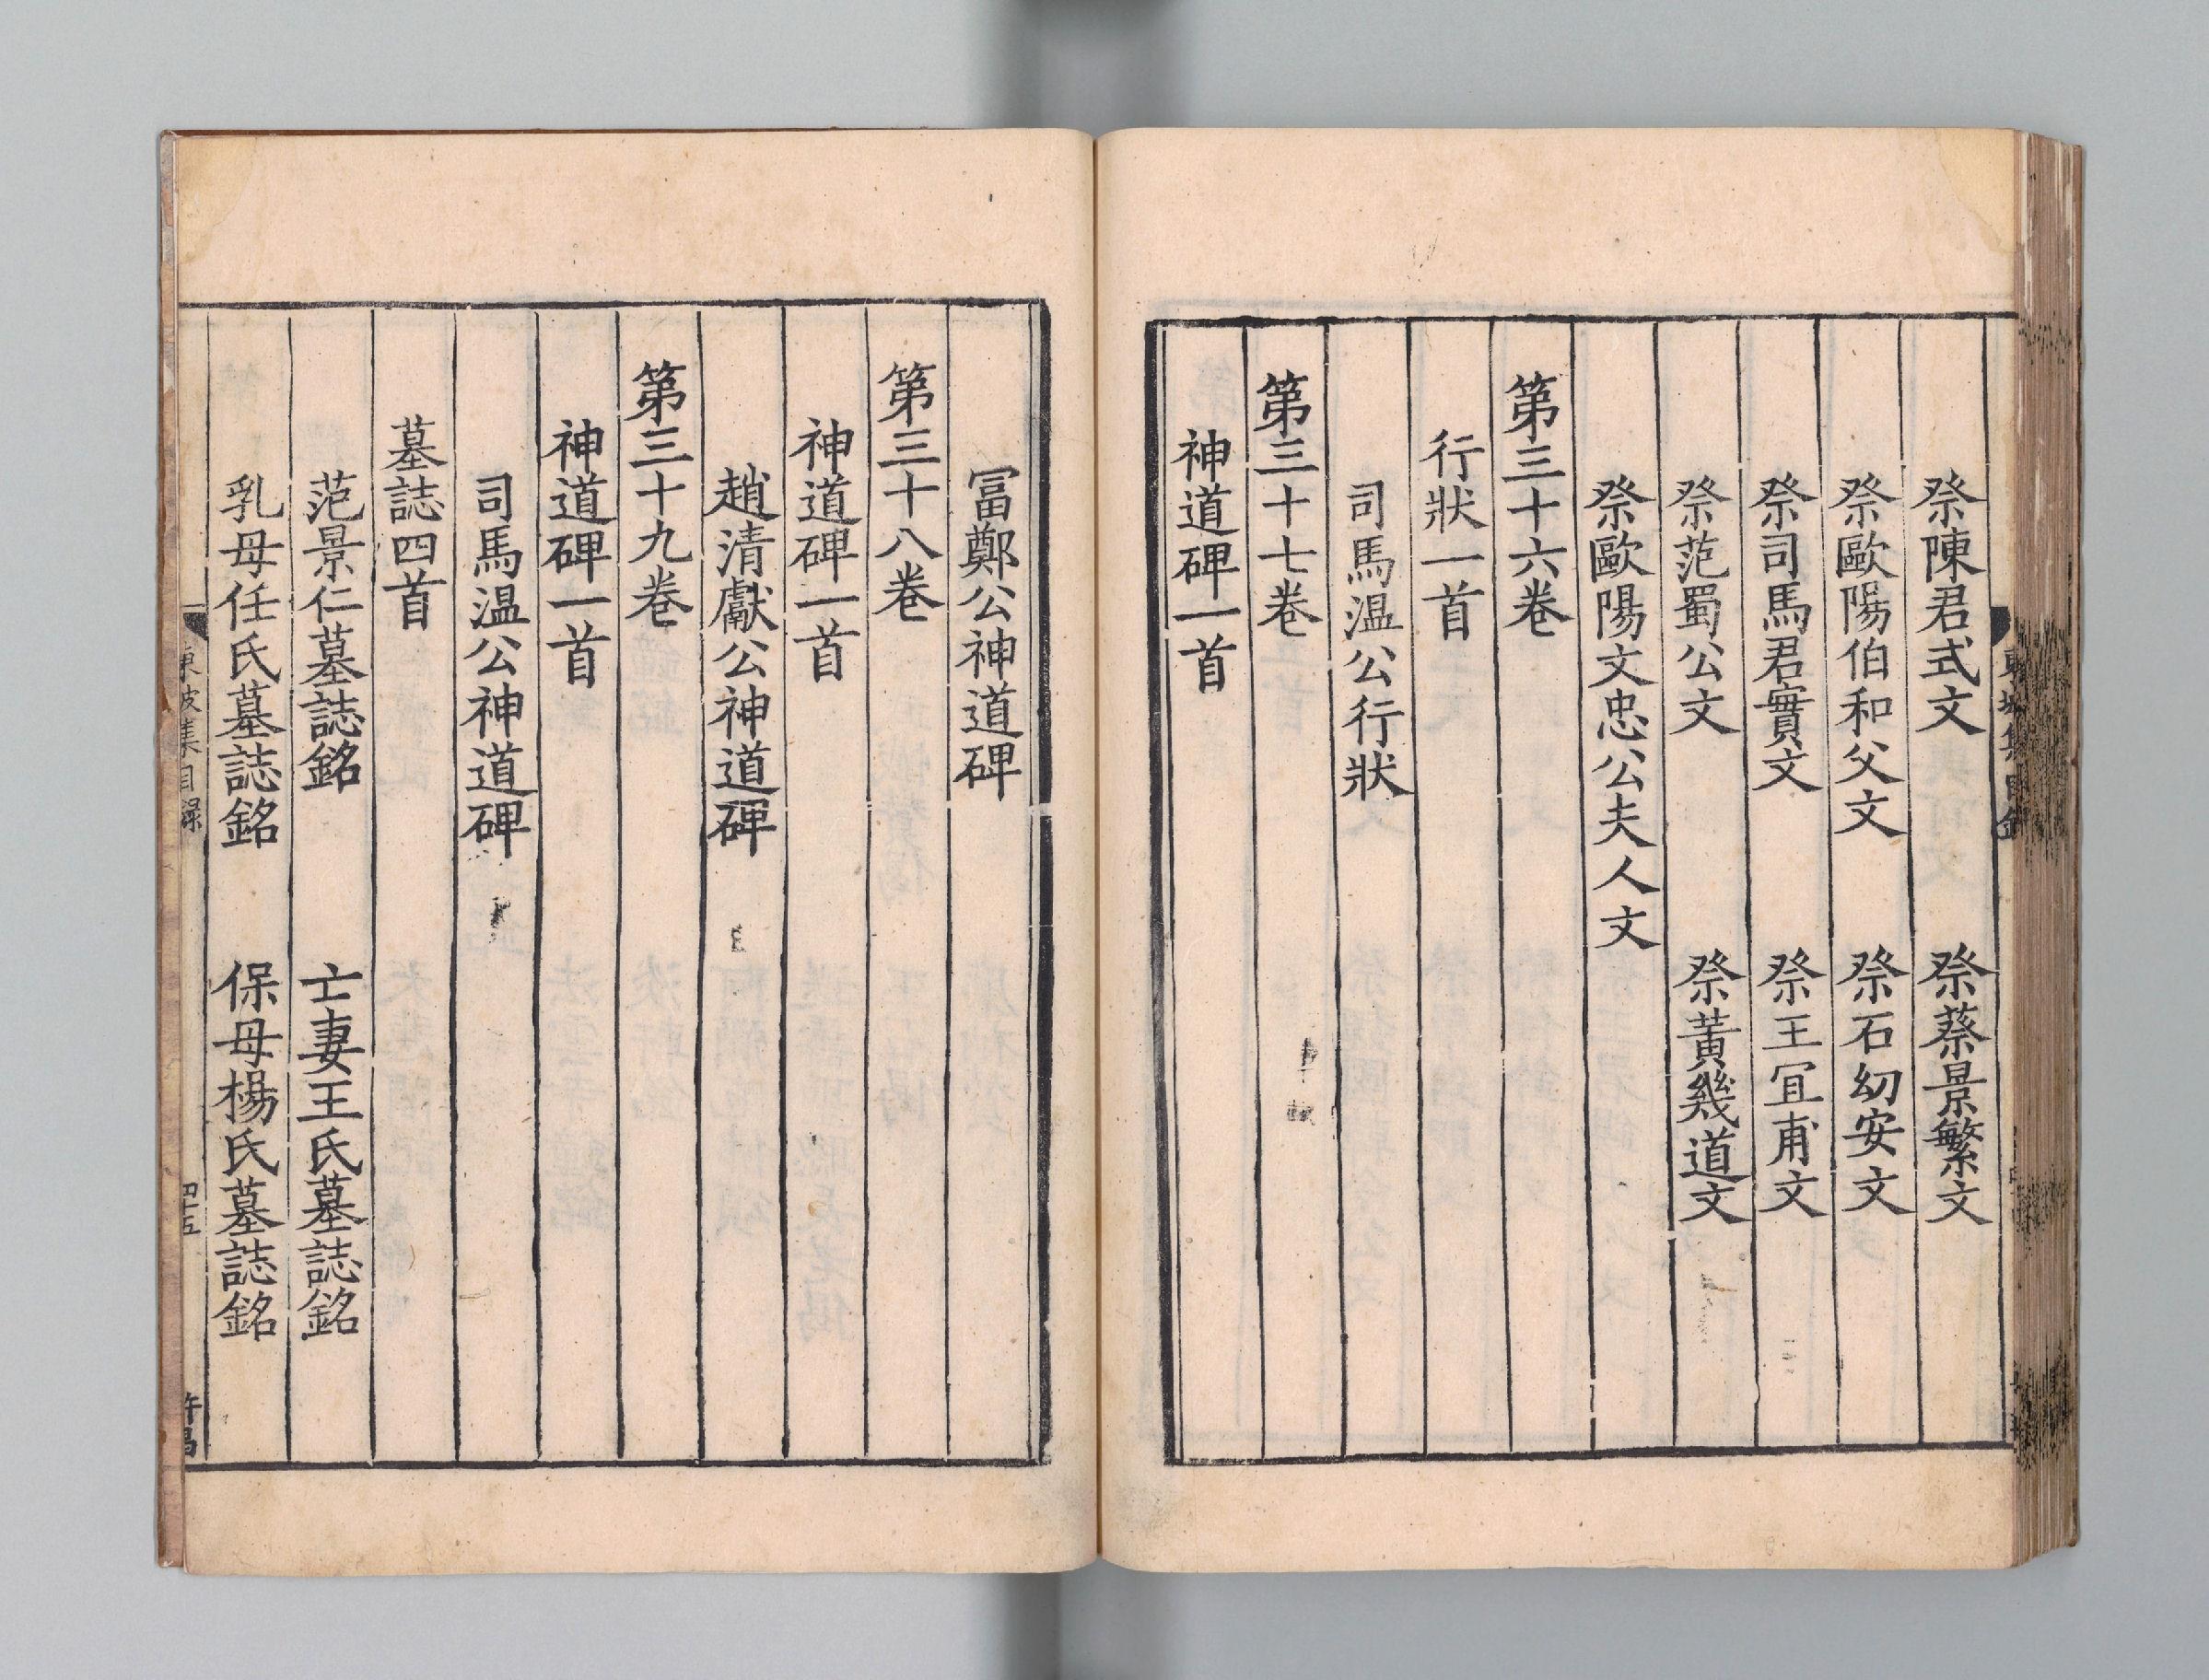 祭陳君式文　祭蔡景繁文
祭歐陽伯和父文　祭石幼安文
祭司馬君實文　祭王冝甫文
祭范蜀公文　祭黃幾道文
祭歐陽文忠公夫人文
第三十六卷
行狀一首
司馬温公行狀
第三十七卷
神道碑一首
冨鄭公神道碑
第三十八卷
神道碑一首
趙清獻公神道碑
第三十九卷
神道碑一首
司馬温公神道碑
墓誌四首
范景仁墓誌銘　亡妻王氏墓誌銘
乳母任氏墓誌銘　保母楊氏墓誌銘
東坡集目錄
四十五
許昌